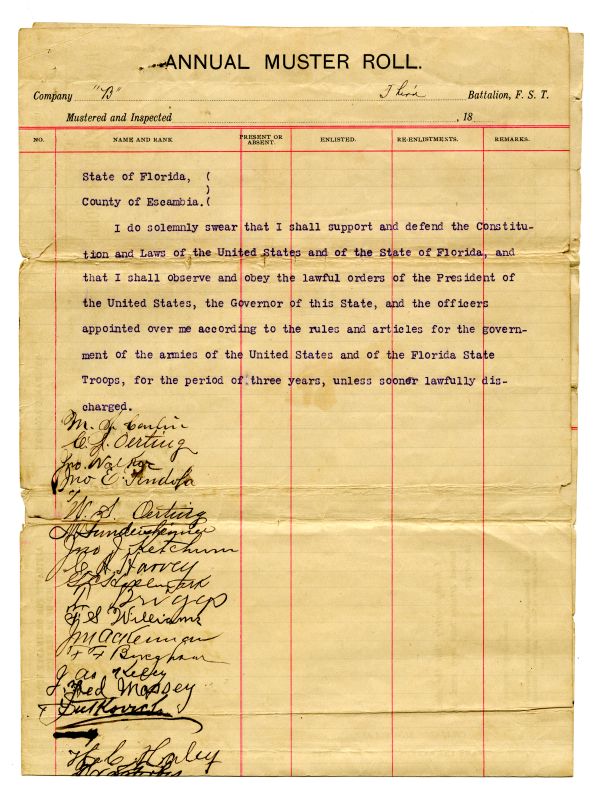 ANNUAL MUSTER ROLL.
Company "B" Third Battalion, F. S. T.
Mustered and Inspected , 18
NO. NAME AND RANK PRESENT OR ABSENT. ENLISTED. RE-ENLISTMENTS. REMARKS.
State of Florida, (
)
County of Escambia.(
I do solemnly swear that I shall support and defend the Constitu-
tion and Laws of the United States and of the State of Florida, and
that I shall observe and obey the lawful orders of the President of
the United States, the Governor of this State, and the officers
appointed over me according to the rules and articles for the govern-
ment of the armies of the United States and of the Florida State
Troops, for the period of three years, unless sooner lawfully dis-
charged.
M. J.
C. J. Oerting
Jno. Walker
Jno E.
W. S. Oerting
Jno J. Ketchum
Harvey
Briggs
F. S. Williams
F F Bingham
Jas Kelly
Fred Massey